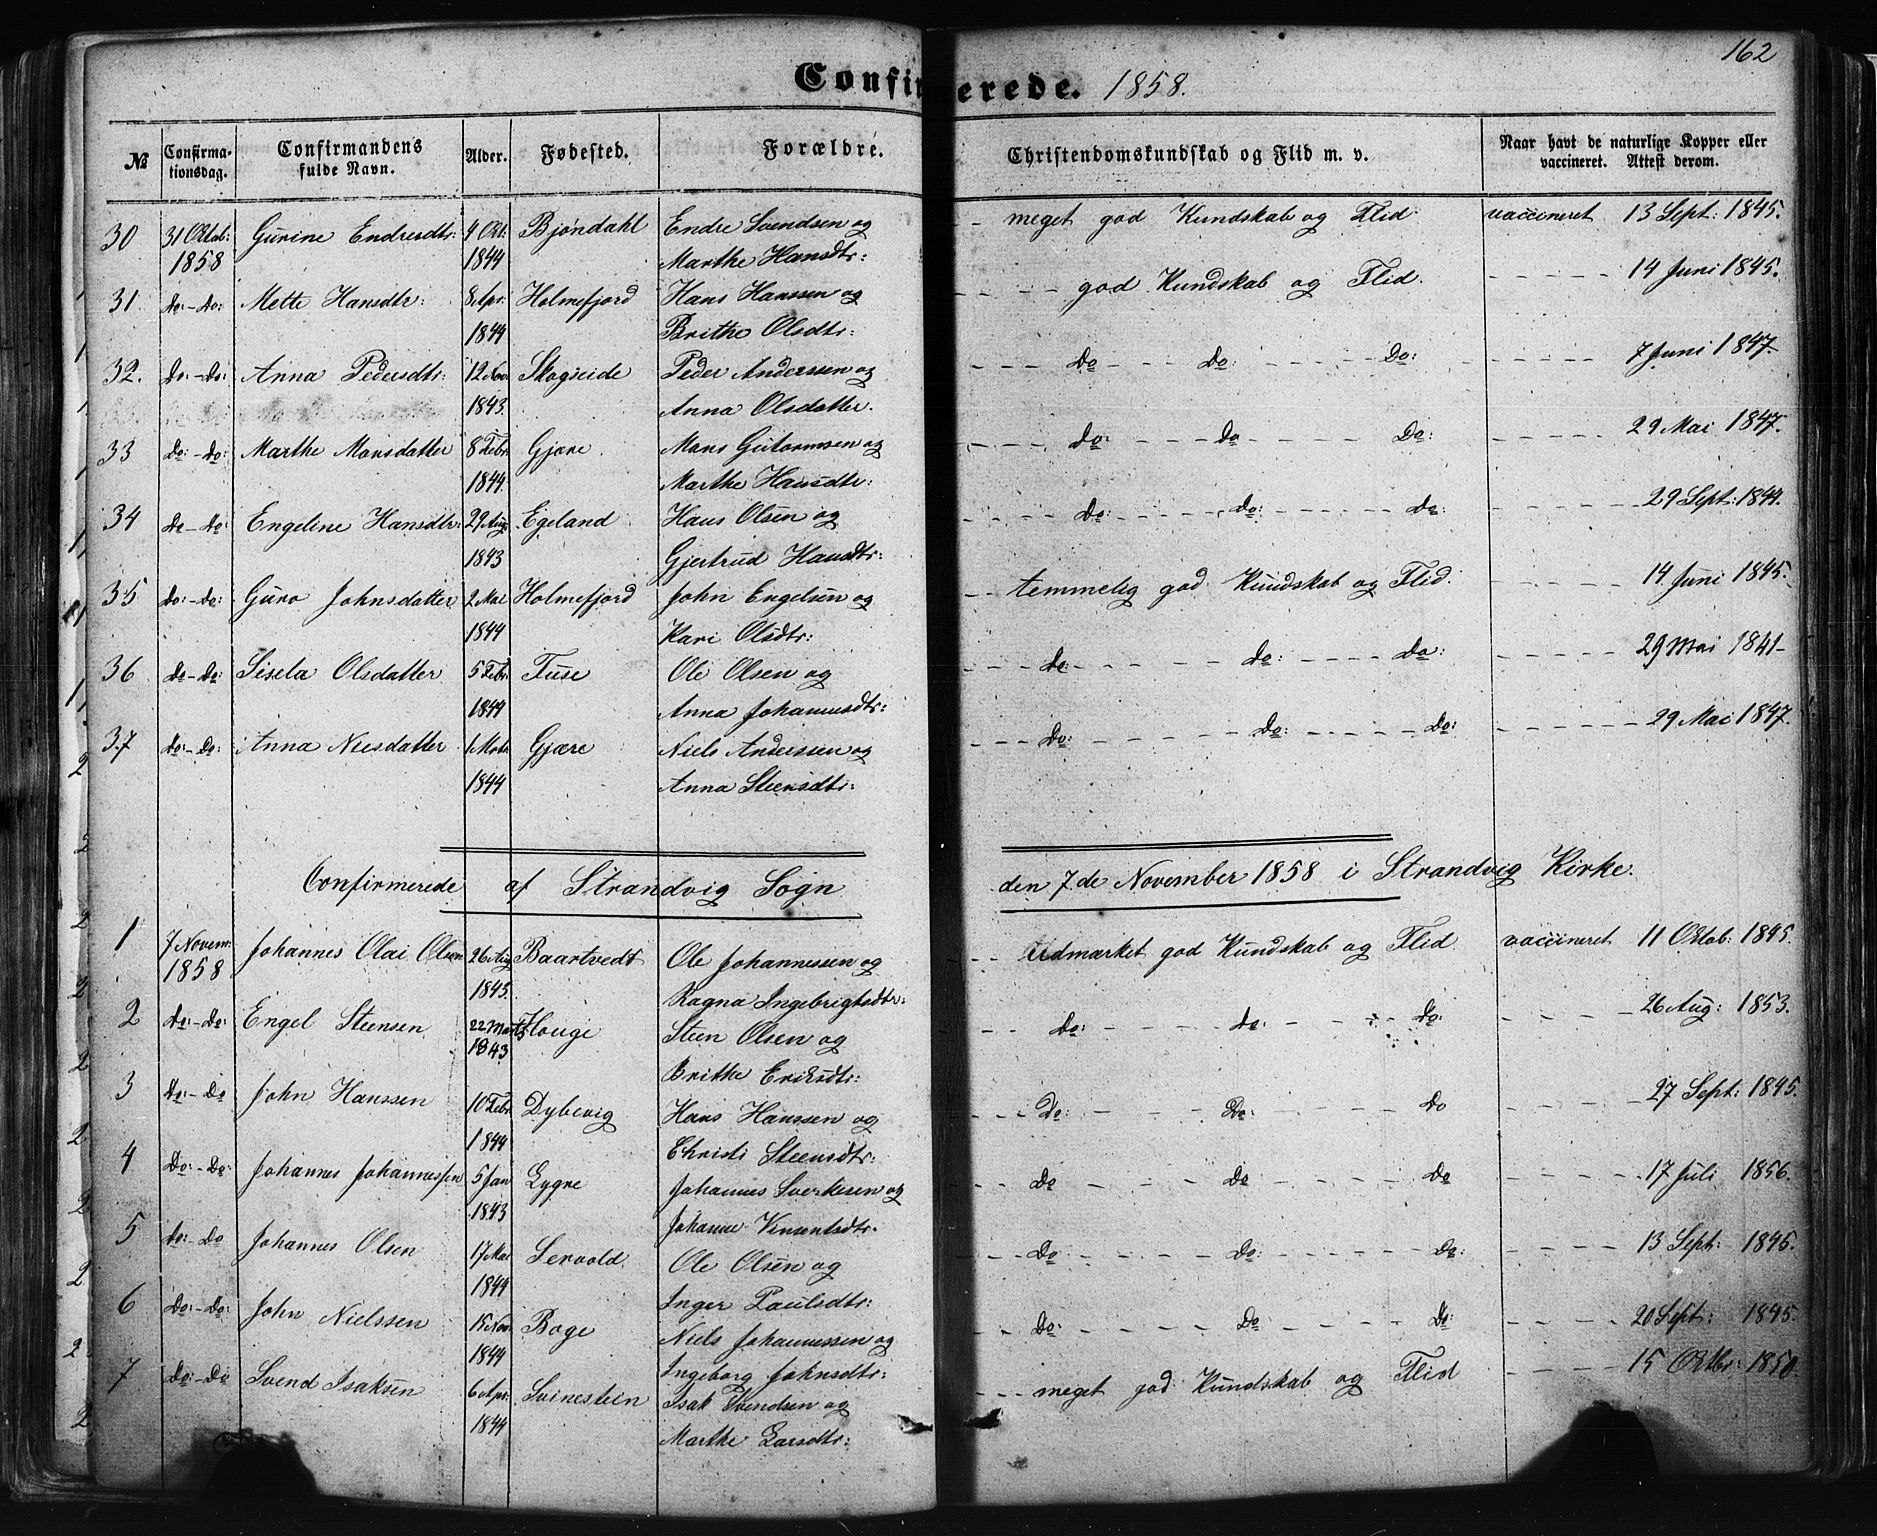 162
Confirmerede. 1858.
№ Confirma-tionsdag. Confirmandens fulde Navn. Alder. Fødested. Forældre. Christendomskundskab og Flid m. v. Naar havt de naturlige Kopper eller vaccineret. Attest derom.
30 31 Oktob: Gurine Endresdtr: 4 Okt: Bjøndahl Endre Svendsen og - - meget god Kundskab og Flid vaccineret 13 Sept: 1845.
1858 1844 Marthe Hansdtr:
31. do: - do: Mette Hansdtr: 8 Apr. Holmefjord Hans Hanssen og - - - - god Kundskab og Flid. - - - - - 14 Juni 1845.
1844 Brithe Olsdtr:
32. Do: - Do: Anna Pedersdtr: 12 Nov. Skogseide Peder Anderssen og Do - - - Do: - - - Do: - - - - - 7 Juni 1847.
1843. Anna Olsdatter.
33 Do: - Do: Marthe Monsdatter 8 Febr. Gjære Mons Gutormsen og - - - - do: - - - do - - - Do: - - - - - 29 Mai 1847.
1844. Marthe Hansdtr:
34 Do - do: Engeline Hansdtr: 29 Aug. Egeland Hans Olsen og - - - - Do: - - - - do: - - - - do: - - - - - 29 Sept: 1844.
1843 Gjertrud Hansdtr:
35 Do: - Do: Guro Johnsdatter 2 Mai Holmefjord John Engelsen og - - temmelig god Kundskab og Flid. - - - - - 14 Juni 1845.
1844 Kari Olsdtr:
36 Do - Do: Sisela Olsdatter 5 Febr. Fuse Ole Olsen og - - - do: - - - - do: - - - - Do: - - - - - 29 Mai 1841-
1844 Anna Johannesdtr:
37 Do: - Do: Anna Nielsdatter 1 Mots Gjære Niels Andersen og - - - Do: - - - - - Do: - - - - Do: - - - - - 29 Mai 1847.
1844 Anna Steensdtr:
Confirmerede af Strandvig Sogn den 7de November 1858 i Strandvig Kirke.
1 7 Novem: Johannes Olai Olsen 26 Aug Baartvedt Ole Johannessen og Udmærket god Kundskab og Flid vaccineret 11 Oktob: 1845.
1858 1845. Ragna Ingebrigtsdtr:
2 Do: - Do: Engel Steensen 22 Mars Houge Steen Olsen og - - Do: - - - - do: - - - - Do: - - - - - 26 Aug: 1853.
1843 Brithe Eriksdtr:
3 Do: - Do John Hanssen 10 Febr. Dybevig Hans Hanssen og - - - Do: - - - - Do: - - - - Do - - - - - 27 Sept: 1845.
1844 Christi Steensdtr:
4 Do: - Do: Johannes Johannessen 5 Jan Lygre Johannes Sverkesen og - - - Do - - - - Do - - - - Do - - - - - 17 Juli 1856.
1843 Johanne Vinsentsdtr.
5 Do: - Do Johannes Olsen 17 Mai Lervold Ole Olsen og - - - Do: - - - - Do: - - - - Do: - - - - 13 Sept: 1845.
1844 Inger Paulsdtr:
6 Do: - Do: John Nielssen 15 Nov. Boge Niels Johannessen og - - - Do: - - - - Do - - - - Do: - - - - 20 Sept: 1845.
1844 Ingeborg Johnsdtr:
7 Do: - Do Svend Isaksen 6 Apr. Svinestein Isak Svendsen og - - - meget god Kundskab og Flid - - - - - 15 Oktbr: 1850.
1844 Marthe Larsdtr: